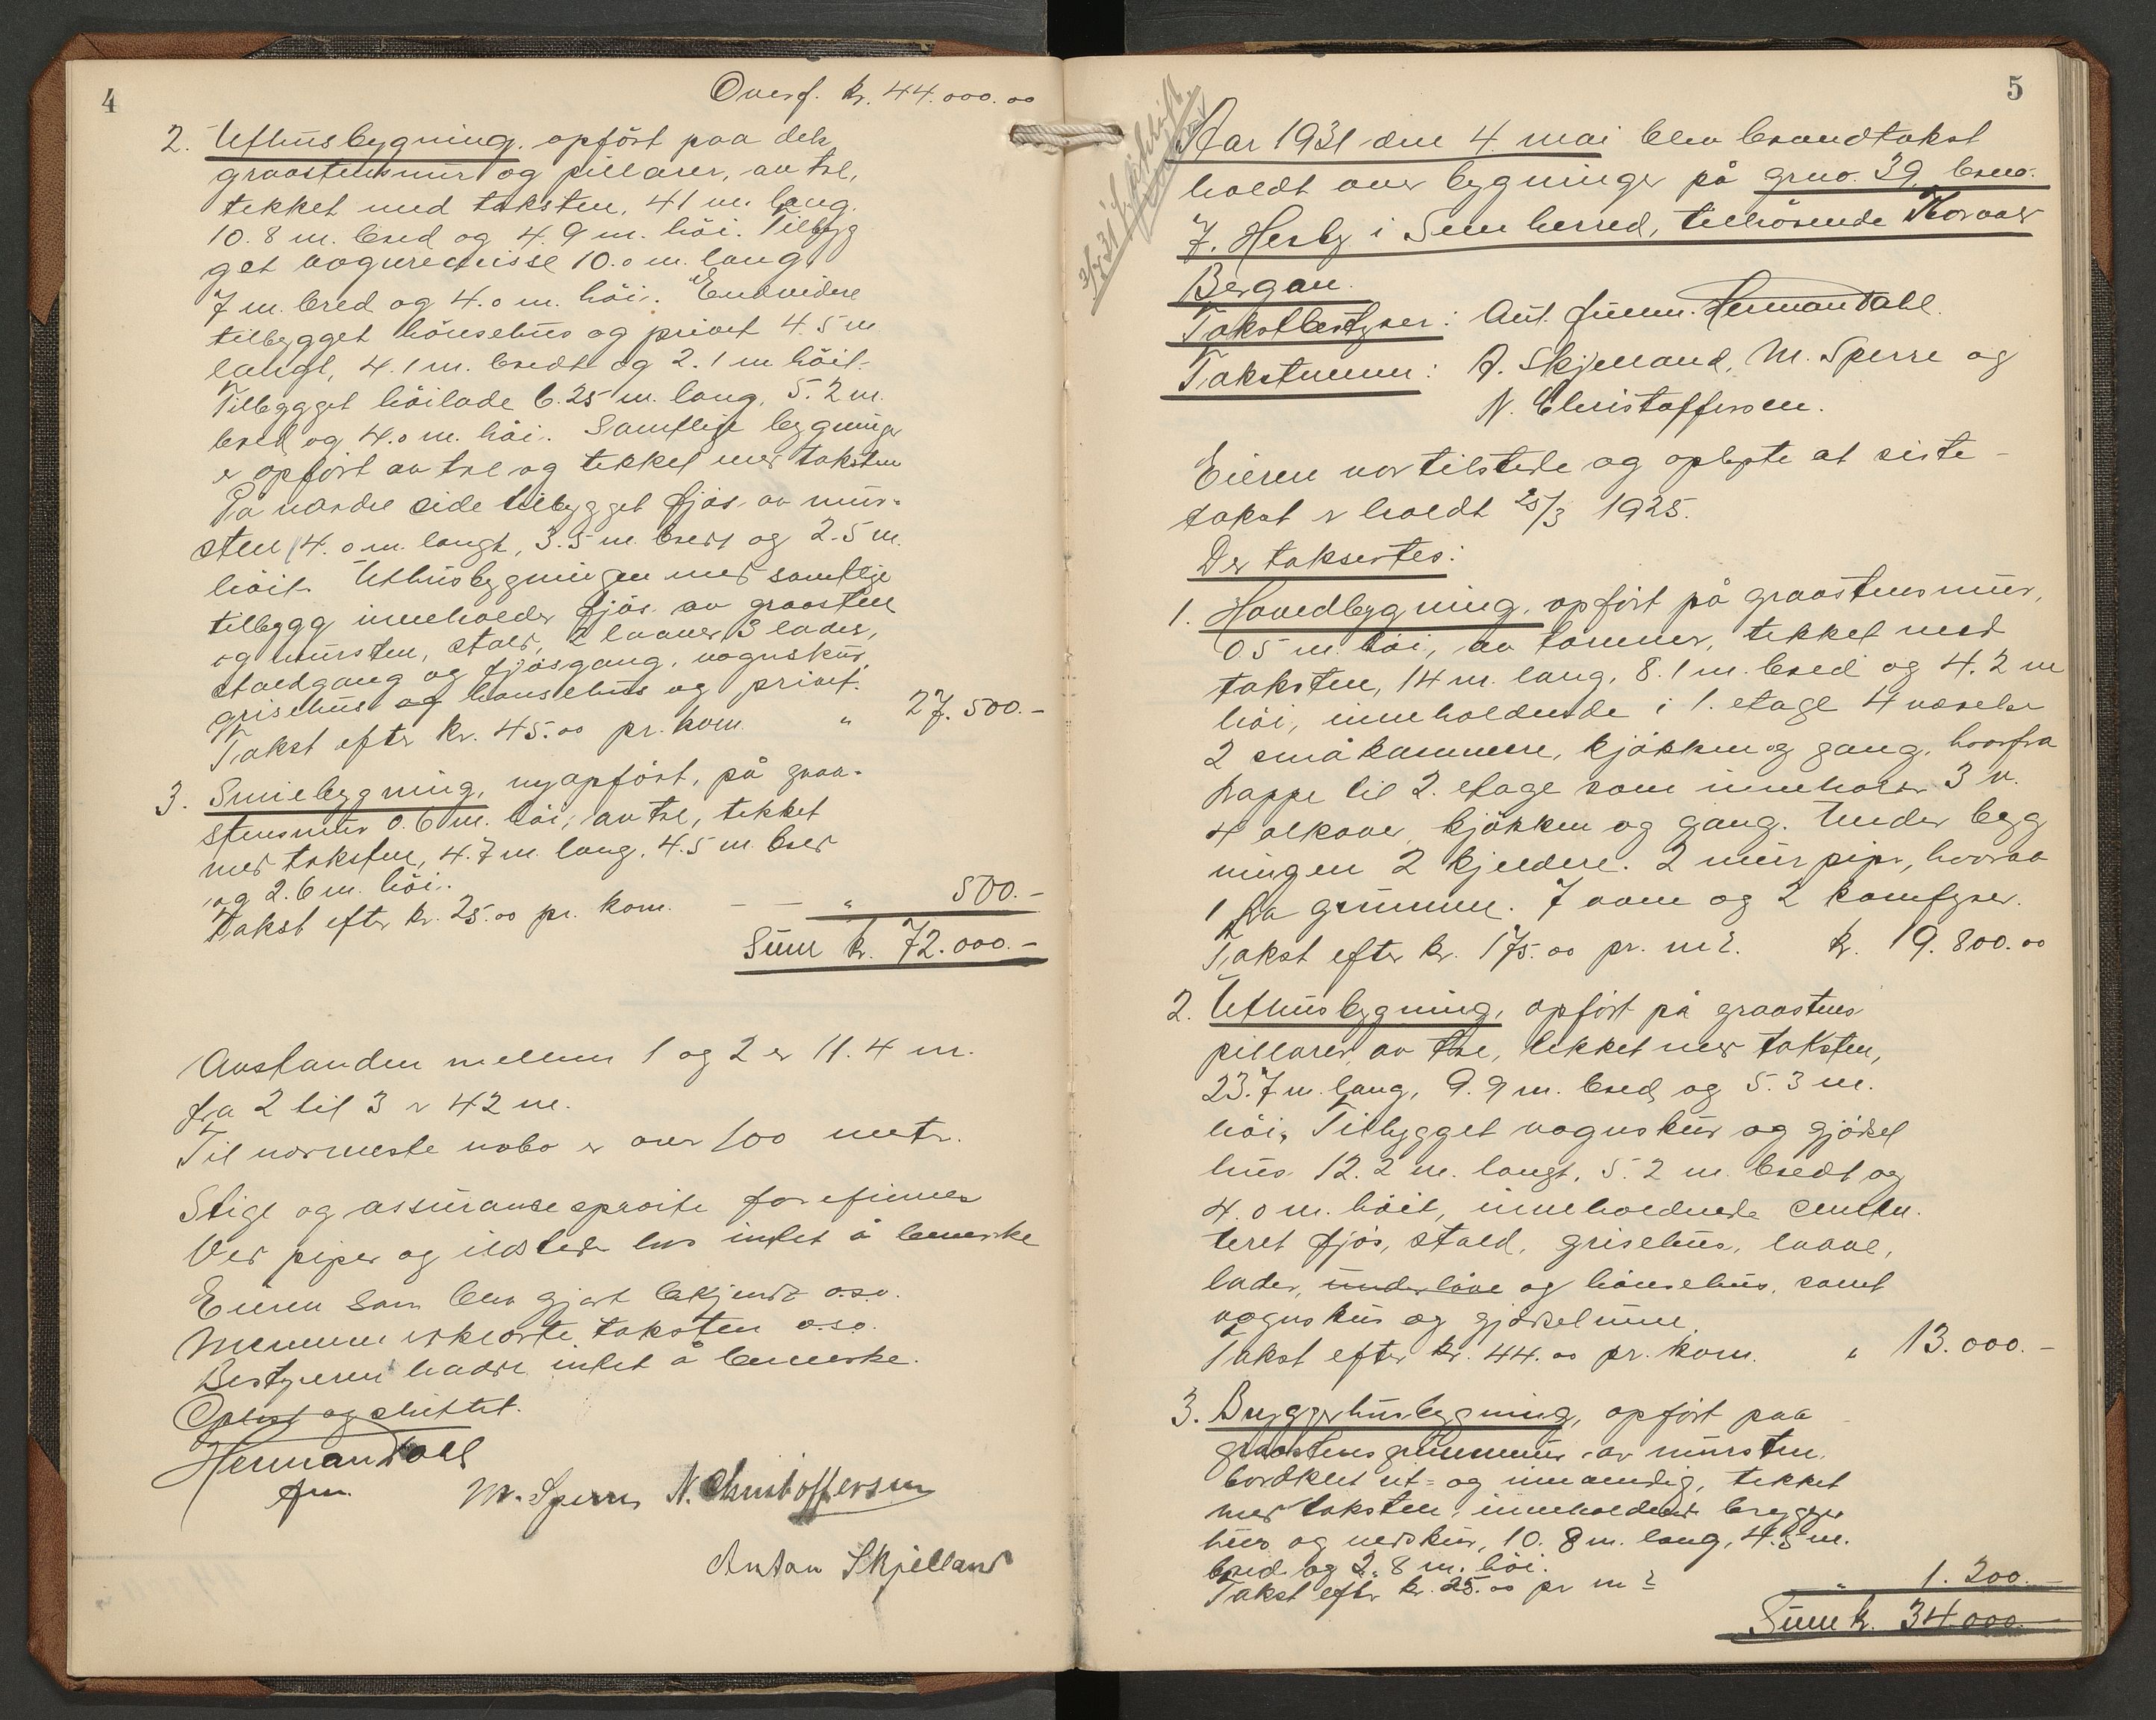 4
Overf. kr. 44.000.00
2. Uthusbygning, opført paa dels
graastensmur og pillarer, av tre,
tekket med taksten, 41 m. lang.
10.8 m. bred og 4.9 m. höi. Tilbyg
get vognremisse 10.0 m. lang,
7 m. bred og 4.0 m. höi. Endvidere
tilbygget hönsehus og privet 4.5 m
langt, 4.1 m. bredt og 2.1 m höit.
Tilbygget höilade 6.25 m. lang, 5.2 m.
bred og 4.0 m. höi. Samtlige bygninger
er opfört av tre og tekket med taksten
På nordre side tilbygget fjøs av mur-
sten 14.0 m. langt, 3.5 m. bredt og 2.5 m.
höit. Uthusbygningen med samtlige
tilbygg inneholder fjös av graasten
og mursten, stald, 2 laaver 3 lader,
staldgang og fjösgang, vognskur,
grisehus og hönsehus og privet.
Takst efter kr. 45.00 pr. kvm. " 27.500.-
3. Smiebygning, nyopfört, på graa-
stensmur 0.6 m. höi, av tre, tekket
med taksten, 4.7 m. lang, 4.5 m bred
og 2.6 m. höi.
Takst efter kr. 25.00 pr. kvm. - - " 500.-
Sum kr. 72.000.-
Avstanden mellem 1 og 2 er 11.4 m.
fra 2 til 3 er 42 m.
Til nærmeste nabo er over 100 meter.
Stige og assuransesprøite forefinnes
Ved piper og ildsteder blev intet å bemerke
Eieren som blev gjort bekjendt o.s.v.
Mennene erklærte taksten o.s.v.
Bestyreren hadde intet å bemerke.
Oplest og sluttet.
Herman Dahl
fm.
M. Sperre N. Christoffersen
Anton Skjelland
5
Aar 1931 den 4 mai blev brandtakst
holdt over bygninger på grno. 39, brno.
7. Hesby i Sem herred, tilhörende Thorvald
Bergan.
Takstbestyrer: Aut. fuldm. Herman Dahl.
Takstmenn: A. Skjelland, M. Sperre og
N. Christoffersen.
Eieren var tilstede og oplyste at siste
takst er holdt 25/3 1925.
Der takseredes:
1. Hovedbygning, opfört på graastensmur,
0.5 m. höi, av tømmer, tekket med
taksten, 14 m. lang, 8.1 m. bred og 4.2 m
höi, inneholdende i 1. etage 4 værelser
2 småkammere, kjökken og gang, hvorfra
trappe til 2. etage som inneholder 3 v.
4 alkover, kjökken og gang. Under byg
ningen 2 kjeldere. 2 murpiper, hvorav
1 fra grunnen. 7 ovne og 2 komfyrer.
Takst efter kr. 175.00 pr. m2. kr. 19.800.00
2. Uthusbygning, opfört på graastens
pillarer, av tre, tekket med taksten,
23.7 m. lang, 9.9 m. bred og 5.3 m.
höi. Tilbygget vognskur og gjödsel
hus 12.2 m. langt, 5.2 m. bredt og
4.0 m. höit, inneholdende cemen-
teret fjös, stald, grisehus, laave,
lader, underlåve og hönsehus, samt
vognskur og gjödselrum.
Takst efter kr. 44.00 pr. kvm. " 13.000.-
3. Bryggerhusbygning, opfört paa
graastensgrunnmur av mursten,
bordklædt ut- og innvendig, tekket
med taksten, inneholdende brygger
hus og vedskur, 10.8 m. lang, 4.5 m.
bred og 2.8 m. höi.
Takst efter kr. 25.00 pr m2 " 1.200.-
Sum kr. 34.000.-